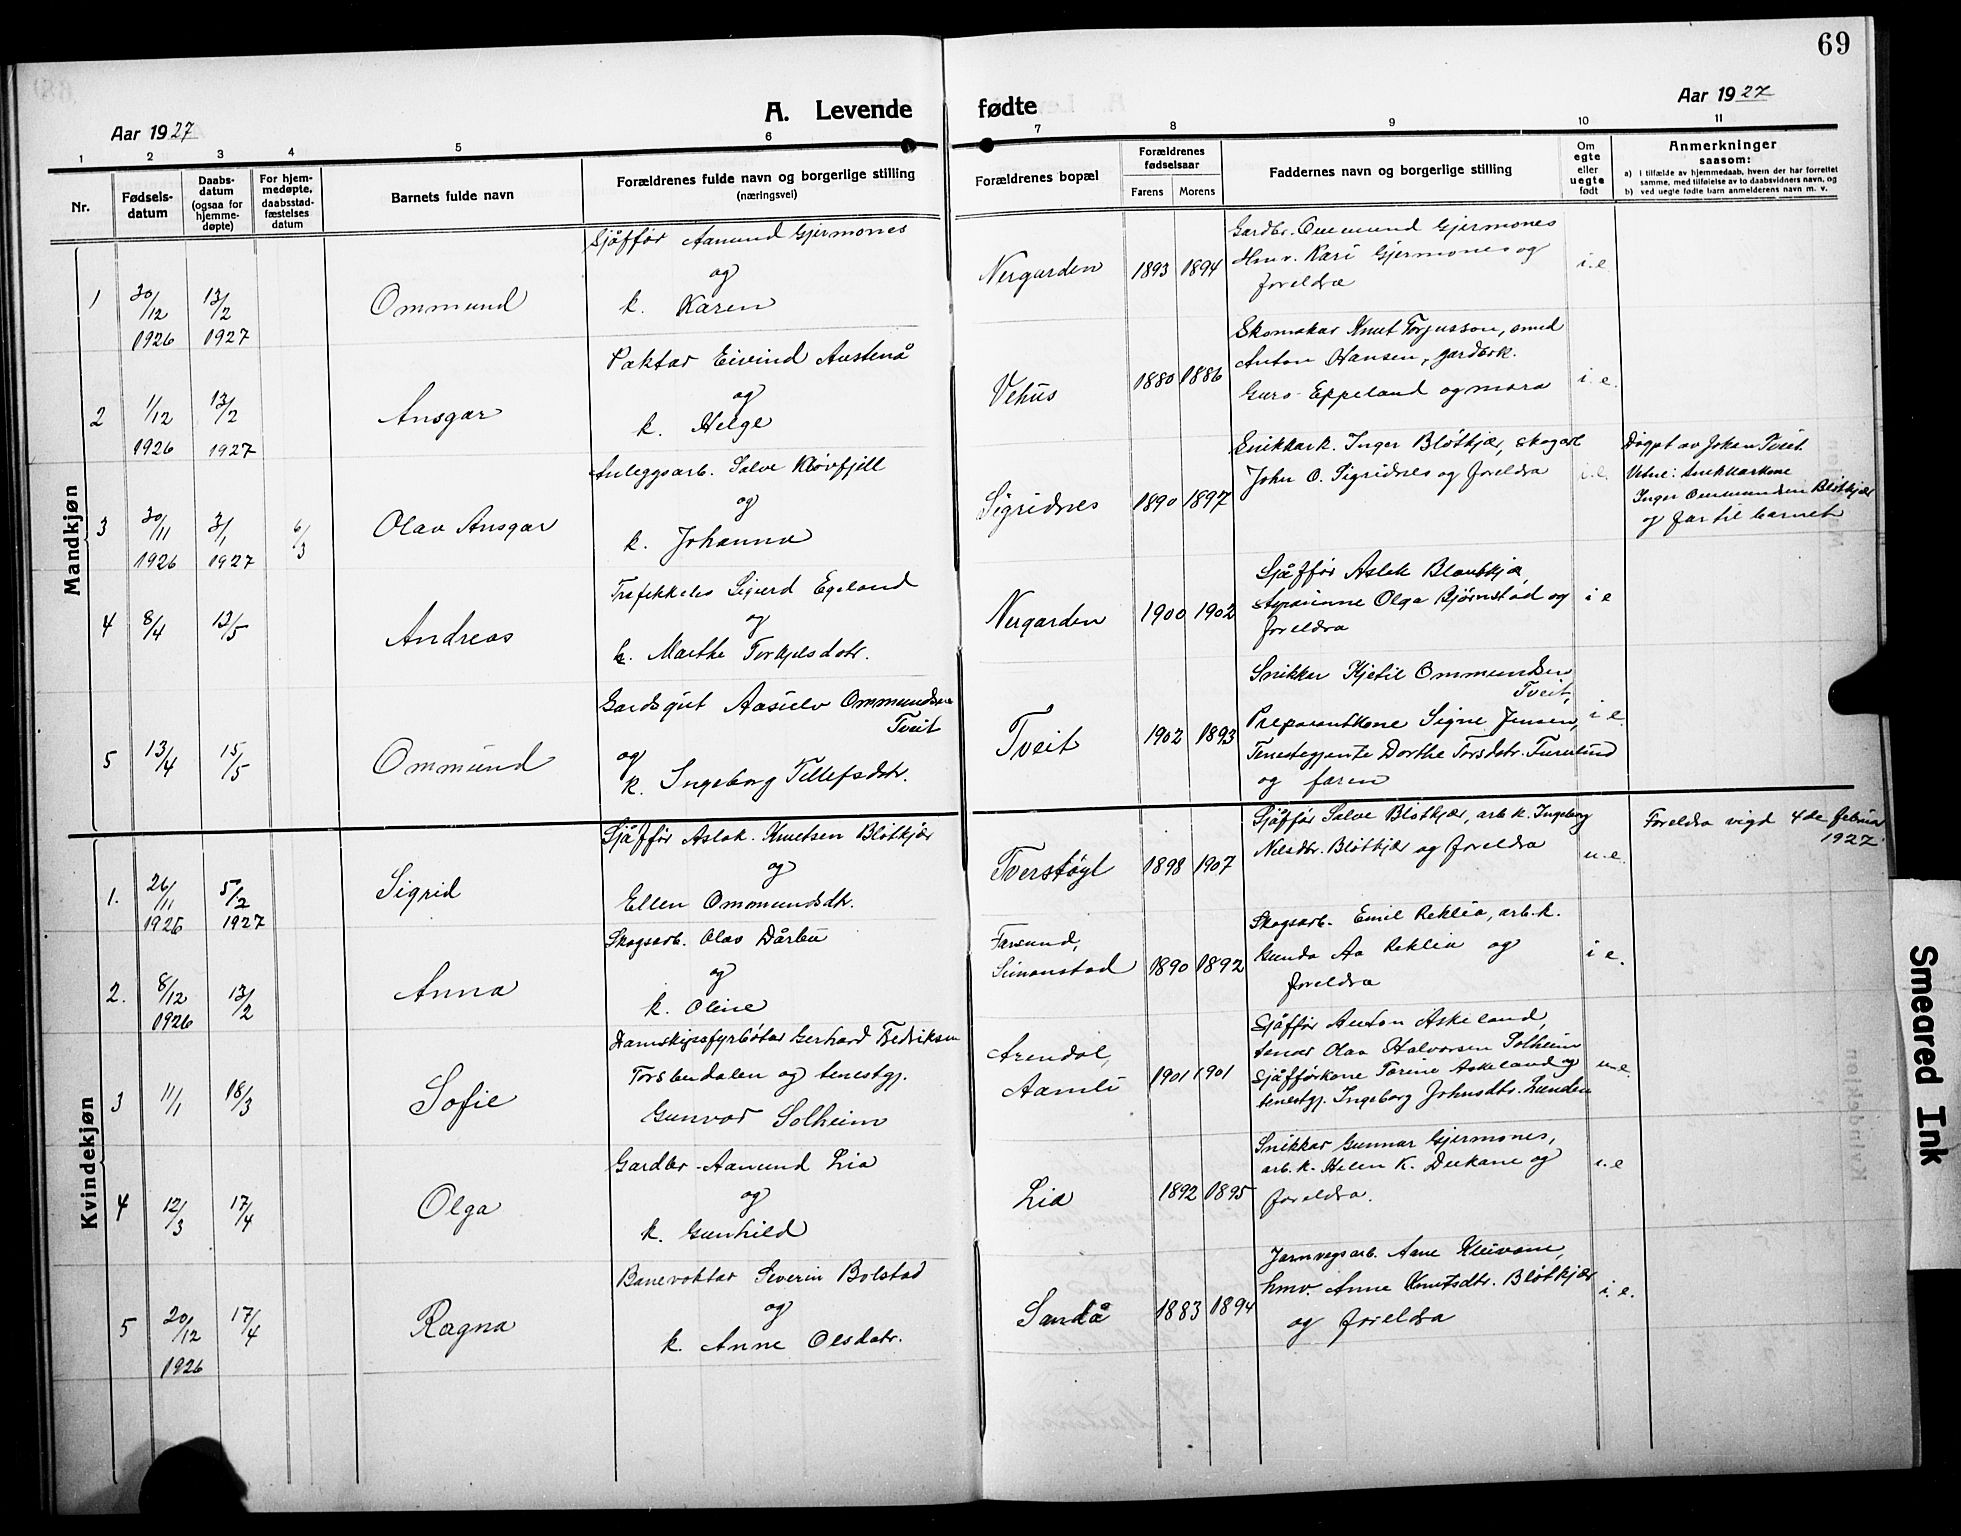 69
A. Levende fødte
Aar 1927
Aar 1927
1 2 3 4 5 6 7 8 9 10 11
Nr.
Fødsels-
datum
Daabs-
datum
(ogsaa for
hjemme-
døpte)
For hjem-
medøpte,
daabsstad-
fæstelses
datum
Barnets fulde navn
Forældrenes fulde navn og borgerlige stilling
(næringsvei)
Forældrenes bopæl
Forældrenes
fødselsaar
Farens Morens
Faddernes navn og borgerlige stilling
Om
egte
eller
uegte
født
Anmerkninger
saasom:
a) i tilfælde av hjemmedaab, hvem der har forrettet
samme, med tilføielse av to daabsvidners navn, og
b) ved uegte fødte barn anmelderens navn m. v.
Mandkjøn
1
30/12
1926
13/2
1927
Ommund
Sjåffør Aamund Gjermones
og
k. Karen
Nergarden
1893 1894
Gardbr. Ommund Gjermones
Hmv. Kari Gjermones og
foreldra
i.e.
2
1/12
1926
13/2
1927
Ansgar
Paktar Eivind Austenå
og
k. Helge
Vehus
1880 1886
Skomakar Knut Torjusson, smed
Anton Hansen, gardbrk.
Guro Eppeland og mora
i.e.
3
30/11
1926
3/1
1927
6/3
Olav Ansgar
Anleggsarb. Salve Kløvfjell
og
k. Johanna
Sigridnes
1890 1897
Snikkark. Inger Bløtkjær, skogarb
John O. Sigridnes og foreldra
i.e.
Døypt av Johan Tveit.
Vitne: Snikkarkone
Inger Ommundsen Bløtkjær
og far til barnet
4
8/4
13/5
Andreas
Sigurd Egeland
og
k. Marthe Torkjelsdotr.
Nergarden
1900 1902
Sjåffør Aslak
Olga Bjørnstad og
foreldra
i e
5
13/4
15/5
Ommund
Gardsgut Aasulv Ommundsen
Tveit
og
k. Ingeborg Tellefsdtr.
Tveit
1902 1893
Snikkar Kjetil Ommundsen
Tveit,
Preparantkone Signe Jensen,
Tenestegjente Dorthe Torsdotr.
og faren
i e.
Kvindekjøn
1.
26/11
1926
5/2
1927
Sigrid
Sjåffør Aslak Knutsen Bløtkjær
og
Ellen Ommundsdtr.
Tverstøyl
1898 1907
Sjåffør Salve Bløtkjær, arb.k. Ingeborg
Nilsdtr. Bløtkjær og foreldra
u.e.
Foreldra vigd 4de februar
1927
2.
8/12
1926
13/2
Anna
Skogsarb. Olav Dårbu
og
k. Oline
Simonstad
1890 1892
Skogsarb. Emil Reklia, arb.k.
Gunda Aa Reklia og
foreldra
i e.
3
11/1
18/3
Sofie
Damskipsfyrbøtar Gerhard Fedriksen
Torsbudalen og tenestgj.
Gunvor Solheim
Arendal,
Aamli
1901 1901
Sjåffør Anton Askeland,
Olav Halvorsen Solheim
Sjåfførkone Torine Askeland og
tenestgj. Ingeborg Johnsdtr. Lunden
u.e.
4
12/3
17/4
Olga
Gardbr. Aamund Lia
og
k. Gunhild
Lia
1892 1895
Snikkar Gunnar Gjermones,
arb.k. Helen K. og
foreldra.
i.e
5
20/12
1926
17/4
Ragna
Banevaktar Severin Bolstad
og
k. Anne Olsdotr.
Sandå
1883 1894
Jarnvegsarb. Aane Kleivane,
hmv. Anne Knutsdtr. Bløtkjær
og foreldra
i.e.
Smeared Ink